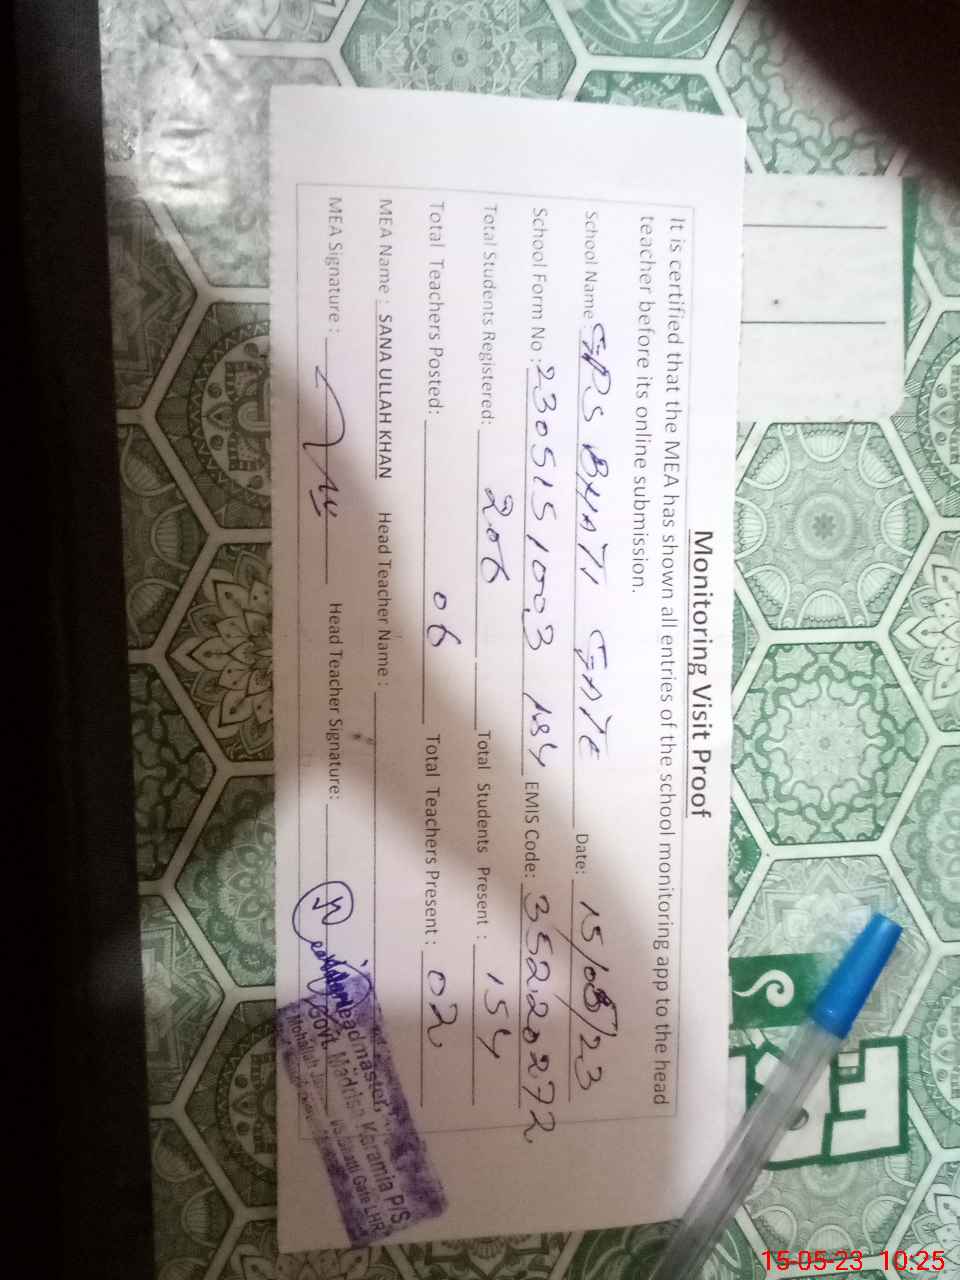 Monitoring Visit Proof
It is certified that the MEA has shown all entries of the school monitoring app to the head
teacher before its online submission.
School Name: GPS BHATI GATE Date: 15/05/23
School Form No: 2305151003184 EMIS Code: 35220272
Total Students Registered: 206 Total Students Present: 154
Total Teachers Posted: 06 Total Teachers Present: 02
MEA Name: SANA ULLAH KHAN Head Teacher Name:
MEA Signature: Head Teacher Signature:
Headmaster,
Govt. Madrisa Karamia P/S
Mohallah Bhatti Gate LHR
15-05-23 10:25